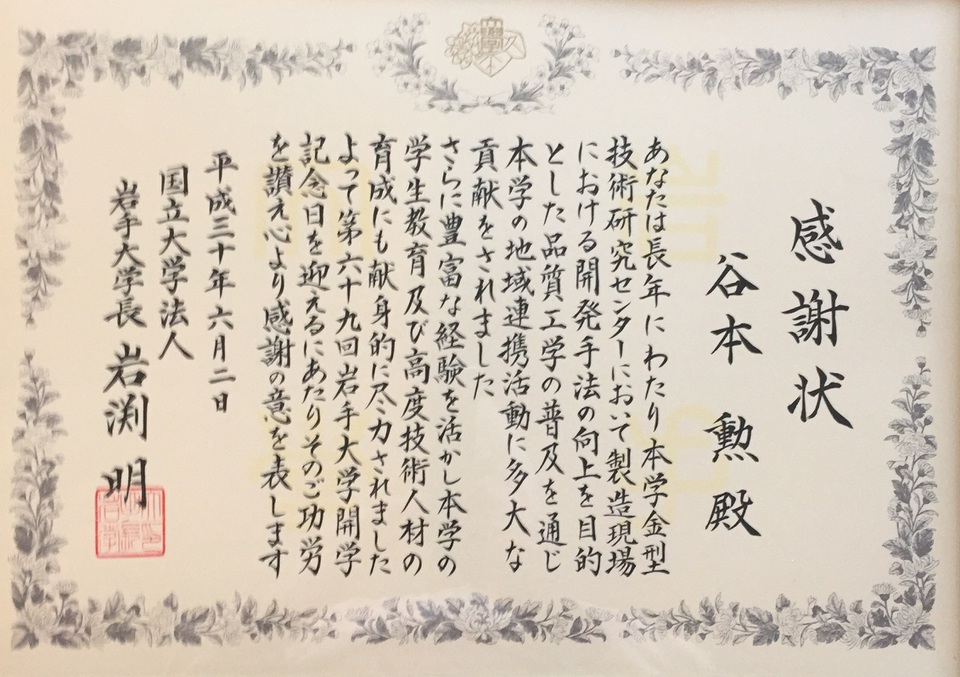 感謝状
谷本 勲 殿
あなたは長年にわたり本学金型
技術研究センターにおいて製造現場
における開発手法の向上を目的
とした品質工学の普及を通じ
本学の地域連携活動に多大な
貢献をされました
さらに豊富な経験を活かし本学の
学生教育及び高度技術人材の
育成にも献身的に尽力されました
よって第六十九回岩手大学開学
記念日を迎えるにあたりそのご功労
を讃え心より感謝の意を表します
平成三十年六月二日
国立大学法人
岩手大学長 岩渕 明